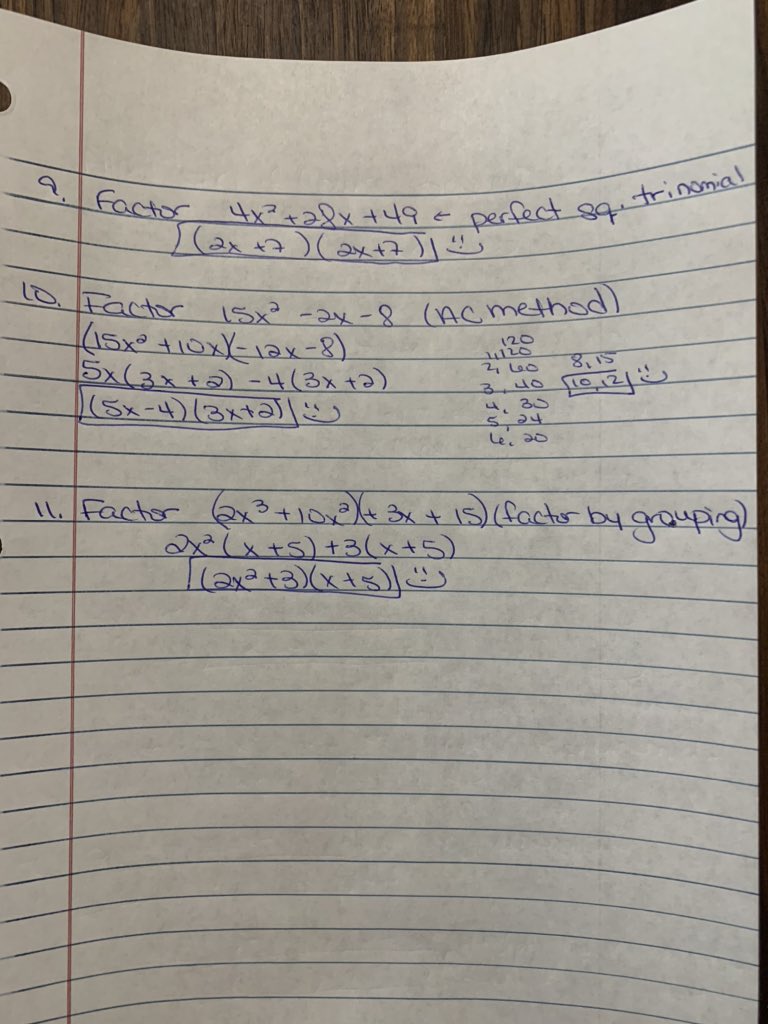 9. Factor 4x² + 28x + 49 ← perfect sq. trinomial
(2x + 7)(2x + 7)
10. Factor 15x² - 2x - 8 (AC method)
(15x² + 10x)(-12x - 8)
5x(3x + 2) - 4(3x + 2)
(5x - 4)(3x + 2)
120
1, 120
2, 60
3, 40
4, 30
5, 24
6, 20
8, 15
10, 12
11. Factor (2x³ + 10x²)(+ 3x + 15) (factor by grouping)
2x²(x + 5) + 3(x + 5)
(2x² + 3)(x + 5)